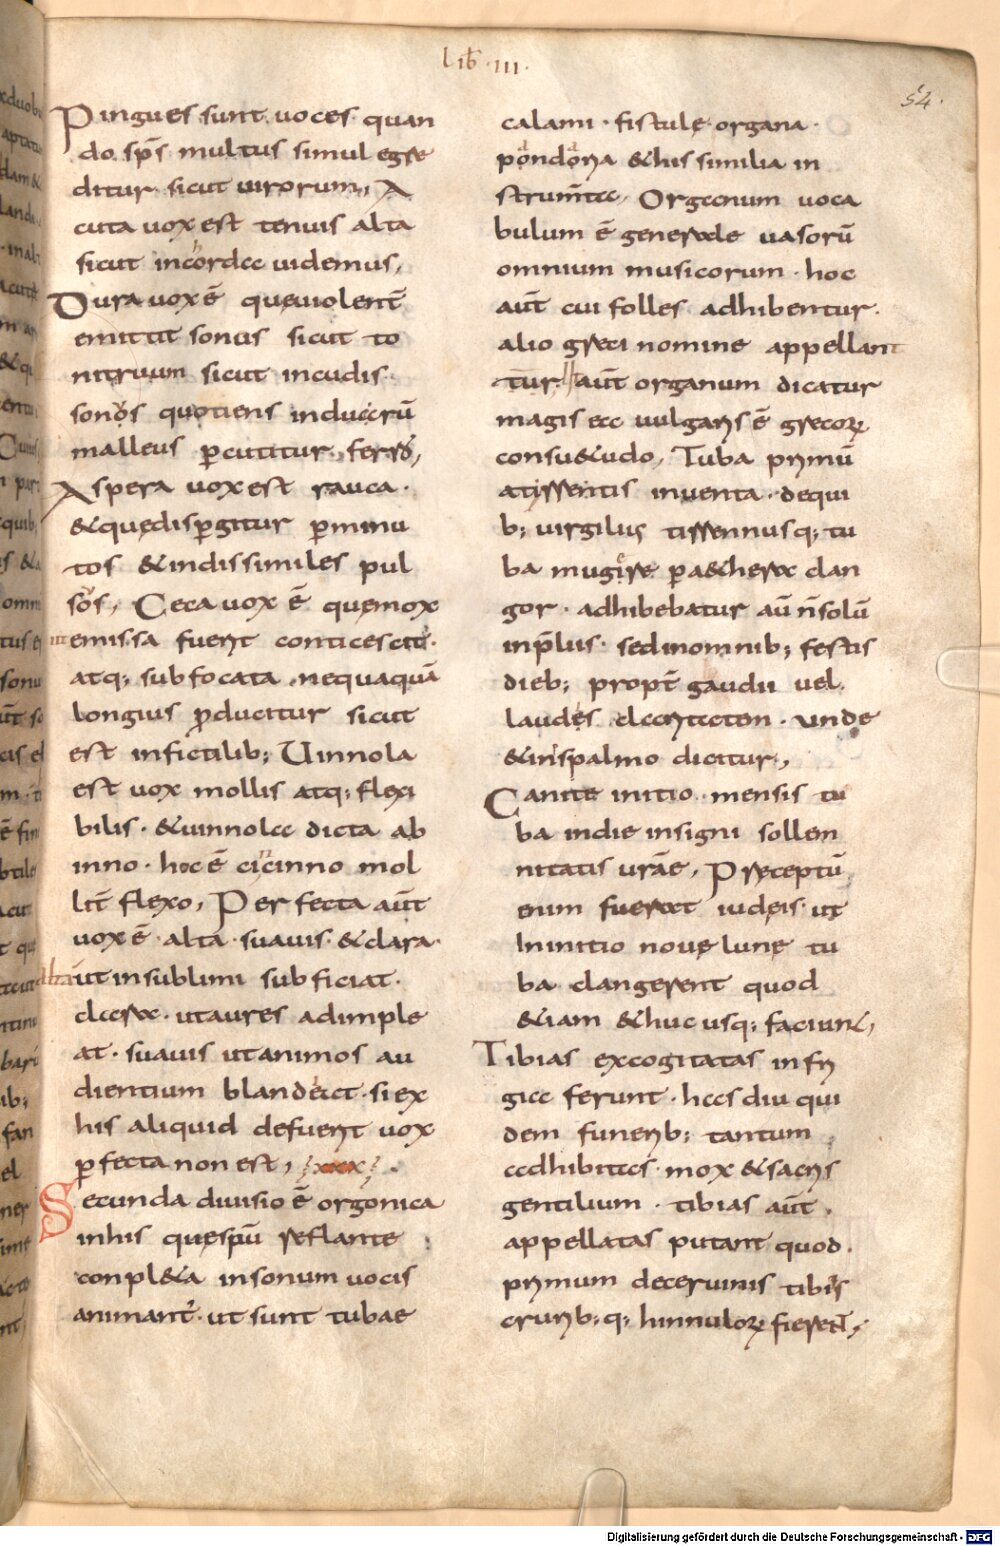 lib · III ·
54.
Pingues sunt voces quan
do sp̄s multus simul egre
ditur · sicut virorum, A
cuta vox est tenuis alta
sicut in cordae videmus,
Dura vox ē que violent̄
emittit sonus sicut to
nitruum sicut incudis
sonos quotiens in durū
malleus ꝑcutitur ferrū,
Aspera vox est rauca ·
&quę dispergitur ꝑminu
tos &indissimiles pul
sos, Ceca vox ē quęmox
ut emissa fuerit conticescit ·
atq; subfocata nequaquā
longius ꝓducitur sicut
est infictilib; Uinnola
est vox mollis atq; flexi
bilis · &uinnolae dicta ab
inno · hoc ē cicinno mol
lit̄ flexo, Perfecta aūt
vox ē alta suavis &clara ·
alta ut insublimi subficiat ·
clara · utaures adimple
at · suavis utanimos au
dientium blandeat · si ex
his aliquid defuerit vox
ꝑfecta non est,
Secunda divisio ē orgonica
inhis quęspū reflante
conpl&a insonum vocis
animant̄ · ut sunt tubae
calami · fistulę organa ·
pandoria &his similia in
strum̄ta, Organum voca
bulum ē generale vasorū
omnium musicorum · hoc
aūt cui folles adhibentur ·
alio greci nomine appellan
tur · aūt organum dicatur
magis ea vulgaris ē grecoꝝ
consu&udo, Tuba primū
atirrenis inventa · dequi
b; virgilius tirrennusq; tu
ba mugire ꝑaethera clan
gor · adhibebatur aū n̄solū
inp̄lus · sedinomnib; festis
dieb; propt̄ gaudii vel
laudes alacritatem · unde
&inspalmo dicitur,
Canite initio mensis tu
ba indie insigni sollem
nitatis vr̄ae, Pręceptū
enim fuerat iudęis ut
Ininitio novę lunę tu
ba clangerent quod
&iam &huc usq; faciunt,
Tibias excogitatas infri
gia ferunt · has diu qui
dem funerib; tantum
adhibitas · mox &sacris
gentilium · tibias aūt
appellatas putant quod
primum decervinis tibiis
crurib; q; hinnuloꝝ fierent,
Digitalisierung gefördert durch die Deutsche Forschungsgemeinschaft - DFG